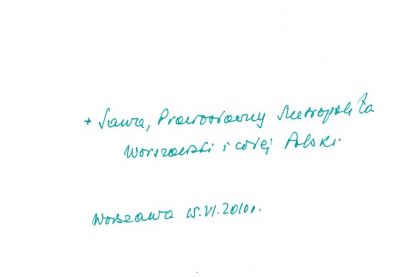 + Sawa, Prawosławny Metropolita
Warszawski i całej Polski.
Warszawa 15.VI.2010r.